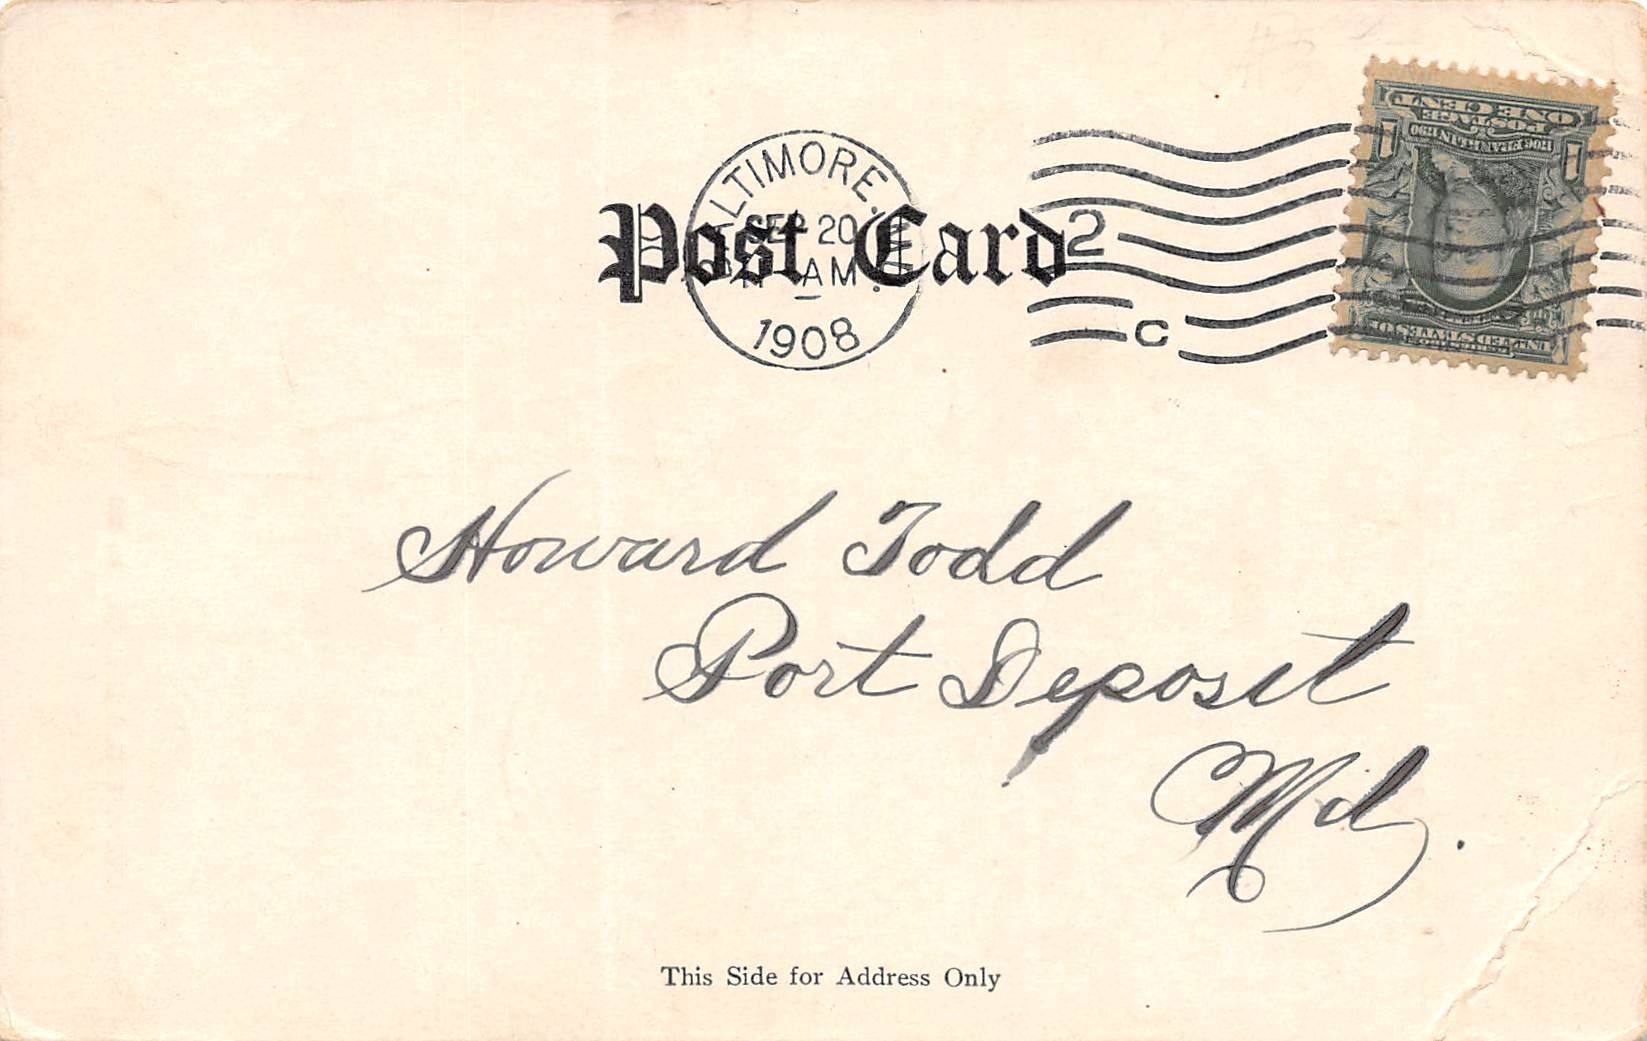 BALTIMORE, MD.
SEP 20
11 AM
1908
2
C
Post Card
ONE CENT
POSTAGE
1 1
Howard Todd
Port Deposit
Md.
This Side for Address Only